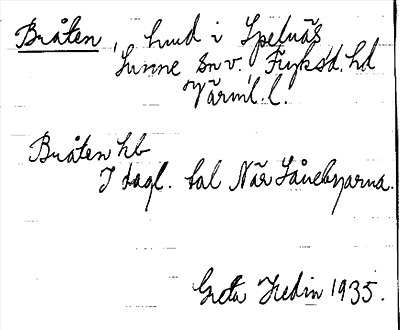 Bråten, hmd i Spelnäs,
Sunne sn v., Fryksd. hd
Värml. l.
Bråten hb
I dagl. tal När Lånebyarna.
Greta Hedin 1935.